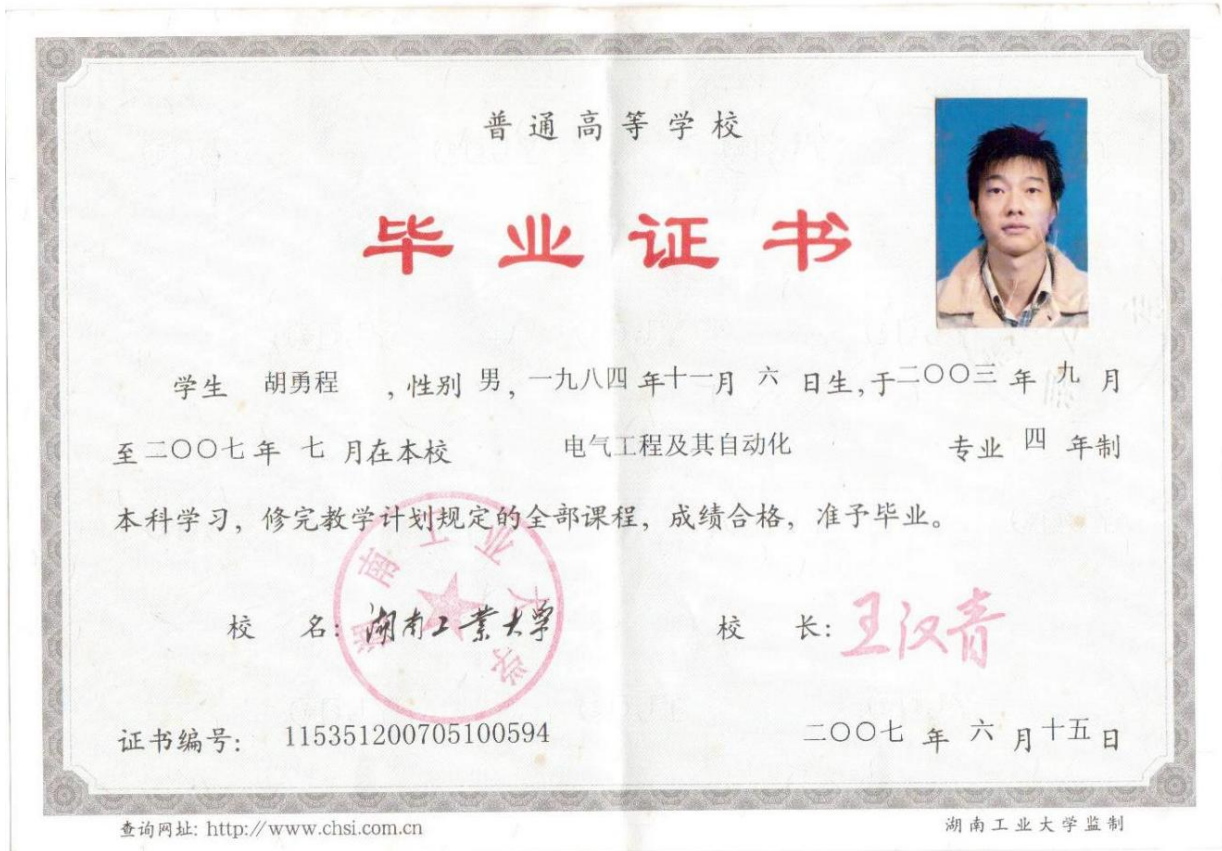 普通高等学校
毕业证书
学生 胡勇程 ,性别 男,一九八四 年十一月 六 日生,于二〇〇三 年 九 月
至二〇〇七年 七 月在本校 电气工程及其自动化 专业 四 年制
本科学习，修完教学计划规定的全部课程，成绩合格，准予毕业。
校 名: 湖南工業大学 校 长: 王汉青
湖南工业大学
证书编号: 115351200705100594 二〇〇七 年 六 月十五日
查询网址: http://www.chsi.com.cn 湖南工业大学监制